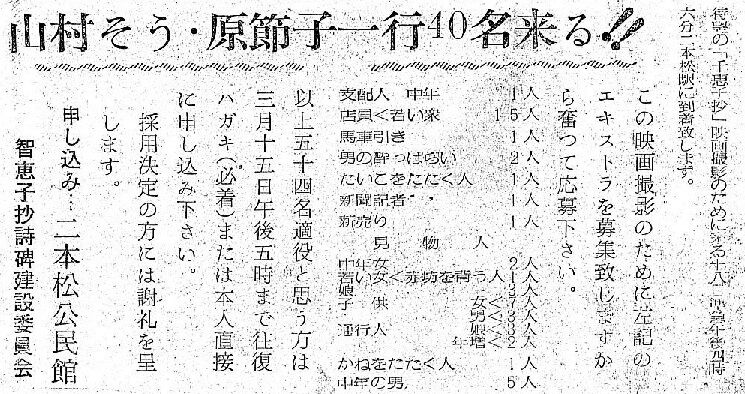 山村そう・原節子一行40名来る!!
待望の「千恵子抄」映画撮影のために来る十八日
六分二本松駅に到着致します。
この映画撮影のために左記の
エキストラを募集致しますか
ら奮つて応募下さい。
支配人 中年 1人
店員く若い衆 15人
馬車引き 1人
男の酔っぱらい 2人
たいこをたたく人 1人
新聞記者 1人
新売り 1人
男物人
中年女 2人
若い女く赤坊を背う人 1人
娘
子供 女く
男く 3人
通行人 娘く 3人
年増く 2人
かねをたたく人 1人
中年の男 5人
以上五十四名適役と思う方は
三月十五日午後五時まで往復
ハガキ(必着)または本人直接
に申し込み下さい。
採用決定の方には謝礼を呈
します。
申し込み…二本松公民館
智恵子抄詩碑建設委員会